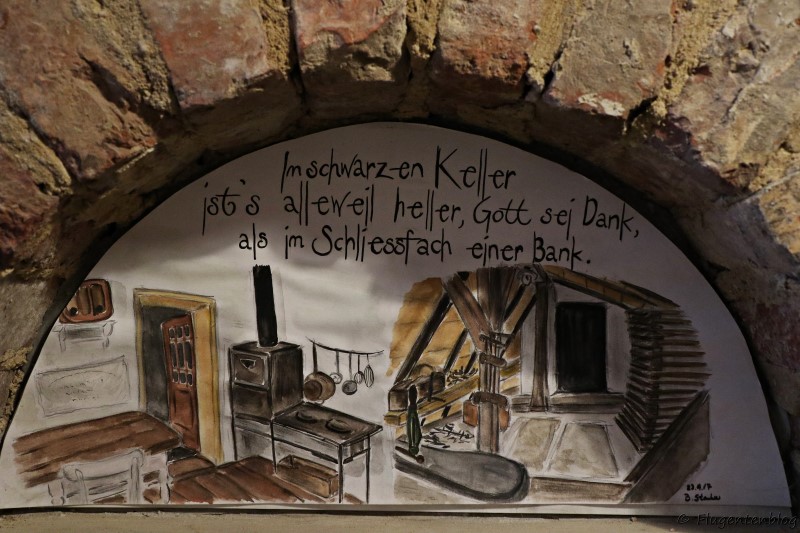 Im schwarz-en Keller
ist's alleweil heller, Gott sei Dank,
als im Schliessfach einer Bank.
© Flugentenblog